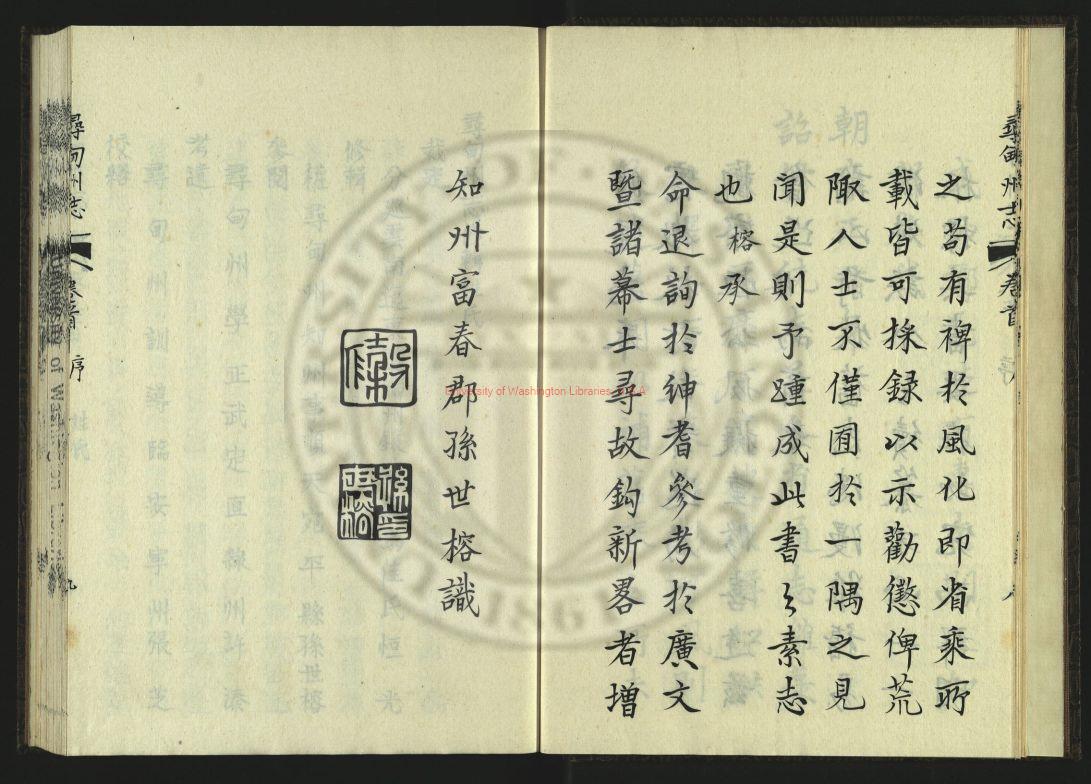 之苟有裨扵風化即省乘所
載皆可採録以示勸懲俾荒
陬人士不僅囿扵一隅之見
聞是則予踵成此書之素志
也榕承
命退詢扵紳耆參考扵廣文
暨諸幕士尋故鈎新畧者增
知州富春郡孫世榕識
尋甸州志
卷首
尋甸州志
卷首
序
九
University of Washington Libraries, USA